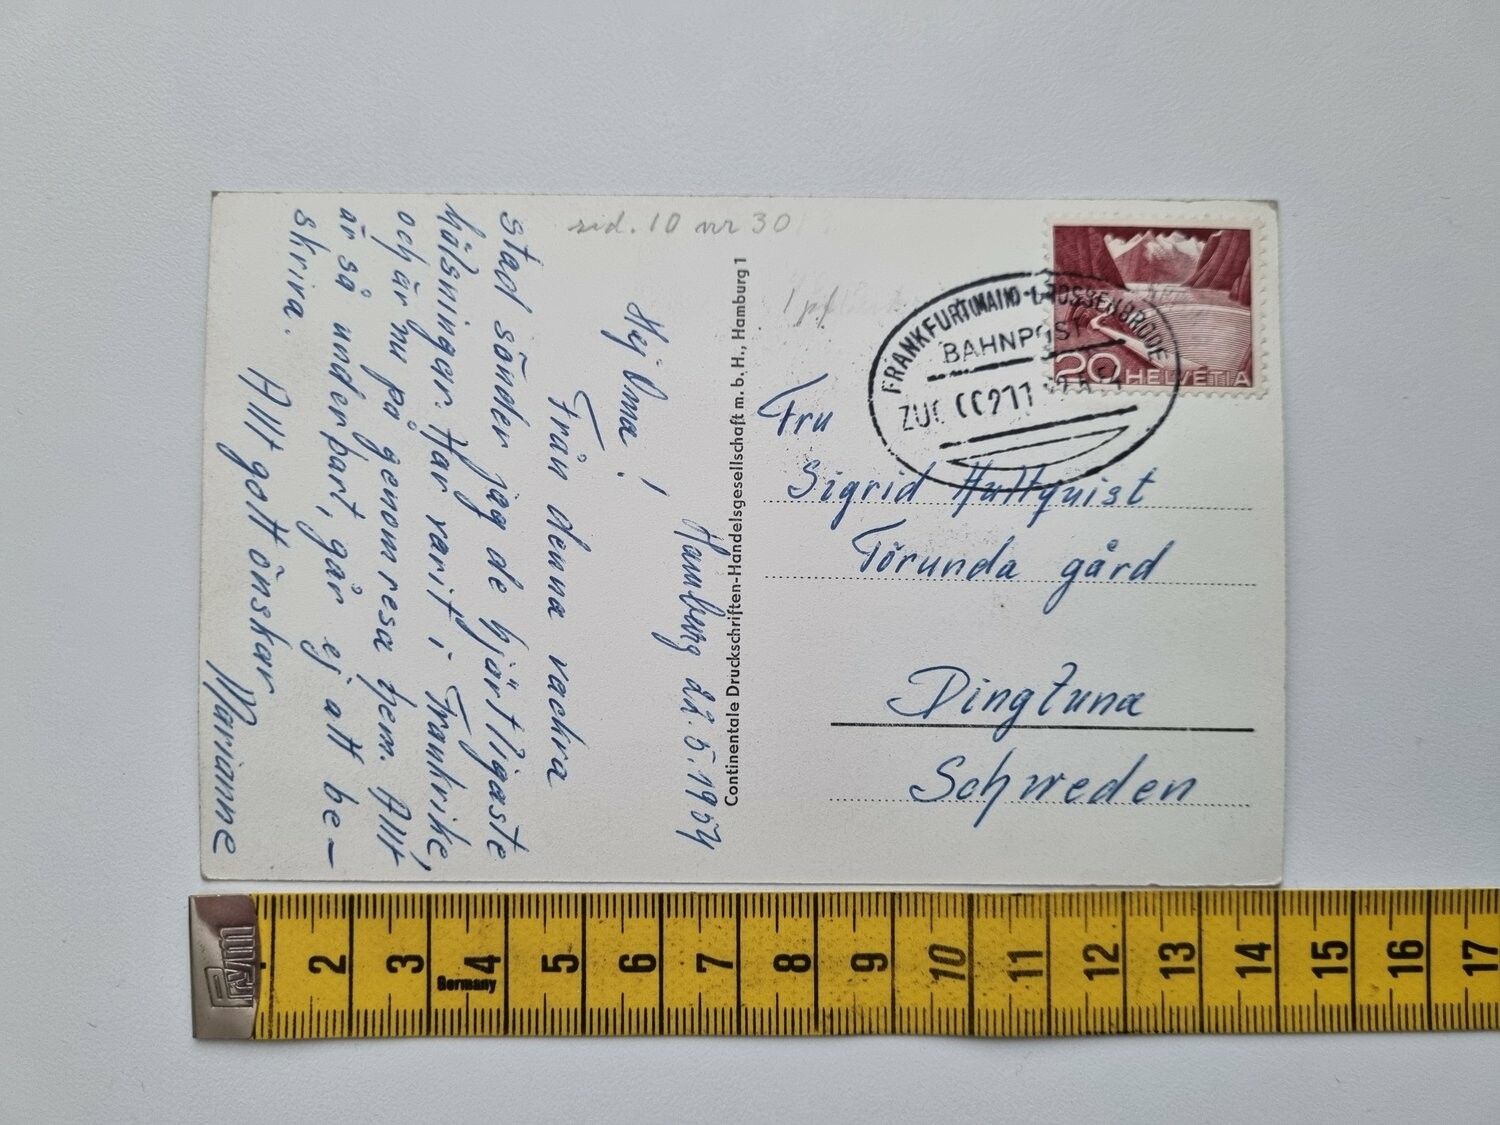 sid. 10 nr 30
Hamburg 22.5.1954
Hej Oma!
Från denna vackra
stad sänder jag de hjärtligaste
hälsningar. Har varit i Frankrike,
och är nu på genomresa hem. Allt
är så underbart, går ej att be-
skriva.
Allt gott önskar
Marianne
Continentale Druckschriften-Handelsgesellschaft m. b. H., Hamburg 1
FRANKFURT (MAIN)-GROSSENBRODE
BAHNPOST
ZUG
20 HELVETIA
Fru
Sigrid Hultquist
Törunda gård
Dingtuna
Schweden
Prym
Germany
2 3 4 5 6 7 8 9 10 11 12 13 14 15 16 17